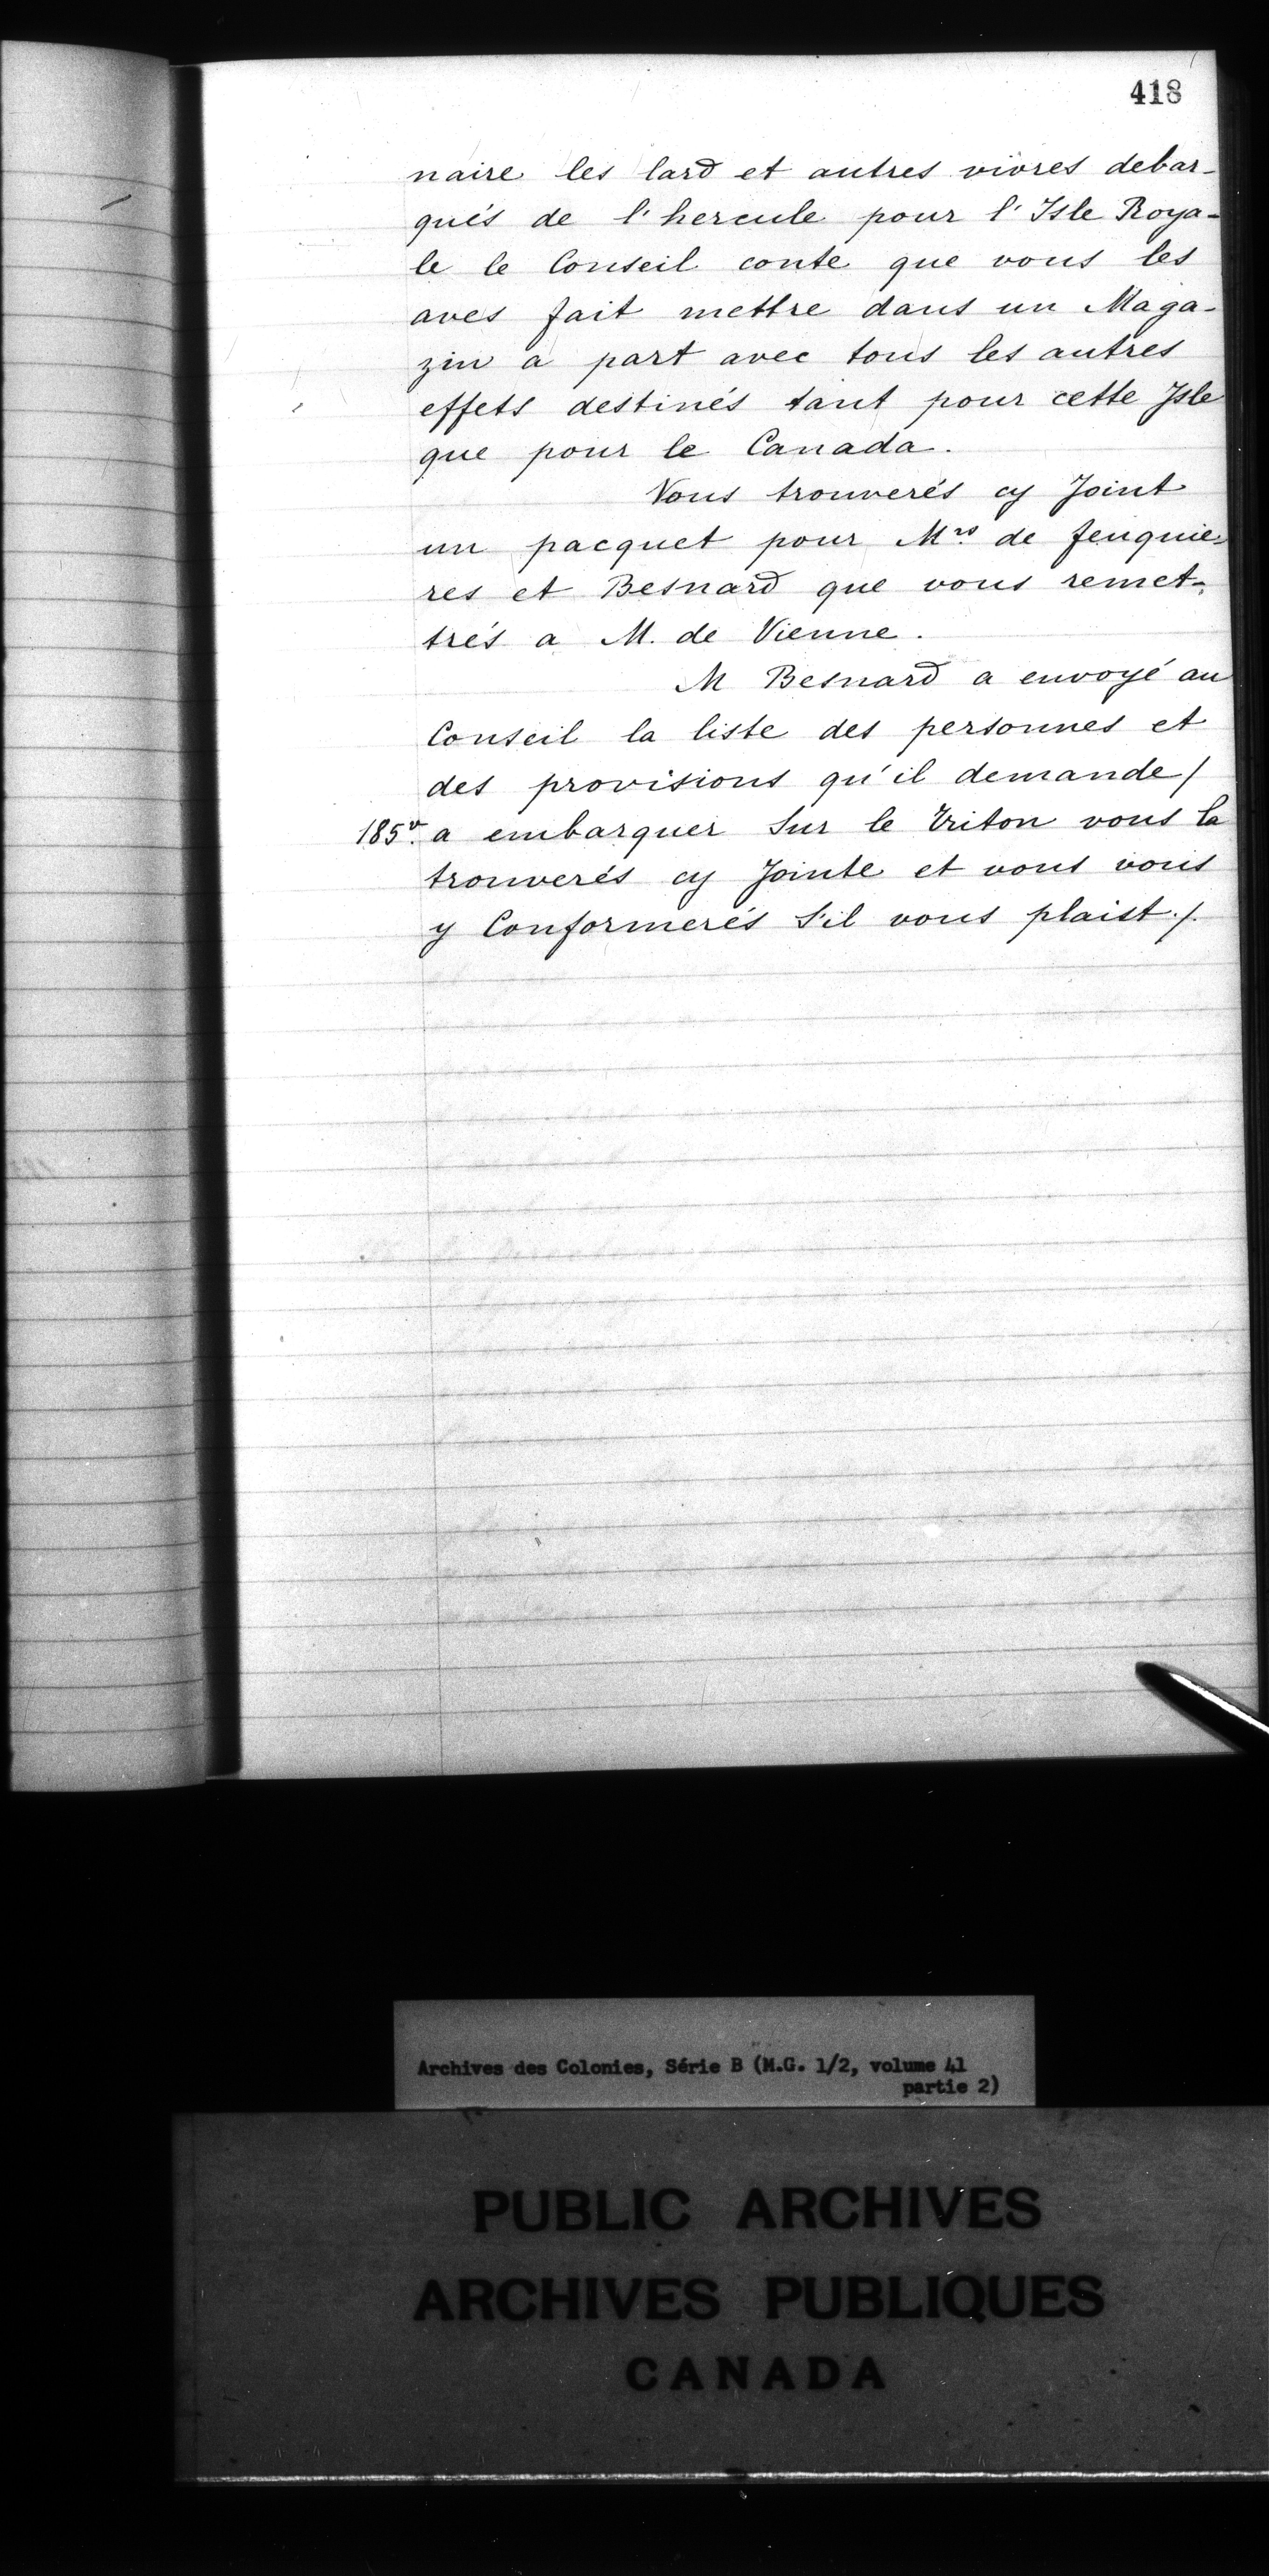 418
naire les lard et autres vivres debar-
qués de l'hercule pour l'Isle Roya-
le le Conseil conte que vous les
aves fait mettre dans un Maga-
zin a part avec tous les autres
effets destinés tant pour cette Isle
que pour le Canada.
Vous trouverés cy Joint
un pacquet pour Mrs de feuquie-
res et Besnard que vous remet-
trés a M. de Vienne.
M Besnard a envoyé au
Conseil la liste des personnes et
des provisions qu'il demande/
185v. a embarquer sur le Triton vous la
trouverés cy Jointe et vous vous
y Conformerés s'il vous plaist./.
Archives des Colonies, Série B (M.G. 1/2, volume 41
partie 2)
PUBLIC ARCHIVES
ARCHIVES PUBLIQUES
CANADA